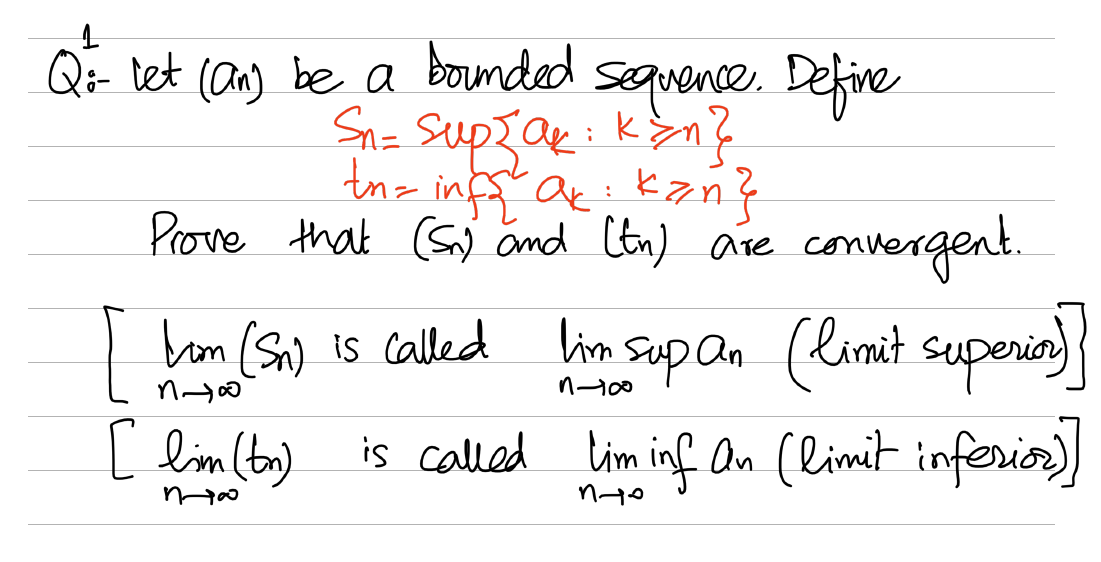 Q1:- let (an) be a bounded sequence. Define
Sn = sup{ak : k ≥ n}
tn = inf{ak : k ≥ n}
Prove that (Sn) and (tn) are convergent.
[ lim n→∞ (Sn) is called lim sup n→∞ an (limit superior)]
[ lim n→∞ (tn) is called lim inf n→∞ an (limit inferior)]